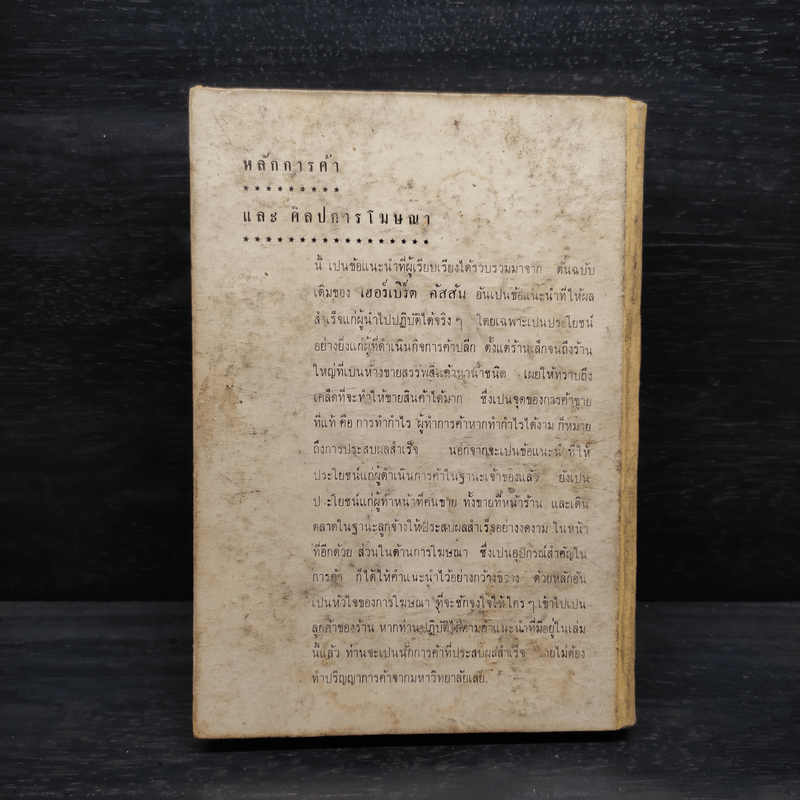 หลักการค้า
*********
และ ศิลปการโฆษณา
*****************
นี้ เปนข้อแนะนำที่ผู้เรียบเรียงได้รวบรวมมาจาก ต้นฉบับ
เดิมของ เฮอร์เบิร์ต คัสสัน อันเปนข้อแนะนำที่ให้ผล
สำเร็จแก่ผู้นำไปปฏิบัติได้จริง ๆ โดยเฉพาะเปนประโยชน์
อย่างยิ่งแก่ผู้ที่ดำเนินกิจการค้าปลีก ตั้งแต่ร้านเล็กจนถึงร้าน
ใหญ่ที่เปนห้างขายสรรพสินค้านานาชนิด เผยให้ทราบถึง
เคล็ดที่จะทำให้ขายสินค้าได้มาก ซึ่งเปนจุดของการค้าขาย
ที่แท้ คือ การทำกำไร ผู้ทำการค้าหากทำกำไรได้งาม ก็หมาย
ถึงการประสบผลสำเร็จ นอกจากจะเปนข้อแนะนำที่ให้
ประโยชน์แก่ผู้ดำเนินการค้าในฐานะเจ้าของแล้ว ยังเปน
ประโยชน์แก่ผู้ทำหน้าที่คนขาย ทั้งขายที่หน้าร้าน และเดิน
ตลาดในฐานะลูกจ้างให้ประสบผลสำเร็จอย่างงดงาม ในหน้า
ที่อีกด้วย ส่วนในด้านการโฆษณา ซึ่งเปนอุปกรณ์สำคัญใน
การค้า ก็ได้ให้คำแนะนำไว้อย่างกว้างขวาง ด้วยหลักอัน
เปนหัวใจของการโฆษณา ที่จะชักจูงใจให้ใคร ๆ เข้าไปเปน
ลูกค้าของร้าน หากท่านปฏิบัติได้ตามคำแนะนำที่มีอยู่ในเล่ม
นี้แล้ว ท่านจะเปนนักการค้าที่ประสบผลสำเร็จ โดยไม่ต้อง
ทำปริญญาการค้าจากมหาวิทยาลัยเลย.